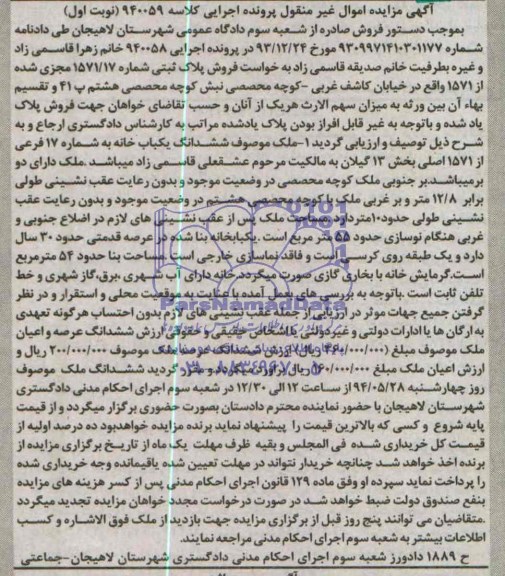 آگهی مزایده اموال غیر منقول پرونده اجرایی کلاسه ۹۴۰۰۵۹ (نوبت اول)
بموجب دستور فروش صادره از شعبه سوم دادگاه عمومی شهرستان لاهیجان طی دادنامه
شماره ۹۳۰۹۹۷۱۴۱۰۳۰۱۱۷۷ مورخ ۹۳/۱۲/۲۴ در پرونده اجرایی ۹۴۰۰۵۸ خانم زهرا قاسمی زاد
و غیره بطرفیت خانم صدیقه قاسمی زاد به خواست فروش پلاک ثبتی شماره ۱۵۷۱/۱۷ مجزی شده
از ۱۵۷۱ واقع در خیابان کاشف غربی -کوچه محصصی نبش کوچه محصصی هشتم پ ۴۱ و تقسیم
بهاء آن بین ورثه به میزان سهم الارث هریک از آنان و حسب تقاضای خواهان جهت فروش پلاک
یاد شده و باتوجه به غیر قابل افراز بودن پلاک یادشده مراتب به کارشناس دادگستری ارجاع و به
شرح ذیل توصیف و ارزیابی گردید ۱-ملک موصوف ششدانگ یکباب خانه به شماره ۱۷ فرعی
از ۱۵۷۱ اصلی بخش ۱۳ گیلان به مالکیت مرحوم عشقعلی قاسمی زاد میباشد .ملک دارای دو
برمیباشد.بر جنوبی ملک کوچه محصصی در وضعیت موجود و بدون رعایت عقب نشینی طولی
برابر ۱۲/۸ متر و بر غربی ملک با کوچه محصصی هشتم در وضعیت موجود و بدون رعایت عقب
نشینی طولی حدود۱۰متردارد .مساحت ملک پس از عقب نشینی های لازم در اضلاع جنوبی و
غربی هنگام نوسازی حدود ۵۵ متر مربع است .یکبابخانه بنا شده در عرصه قدمتی حدود ۳۰ سال
دارد و یک طبقه روی کرسی است و فاقد نماسازی خارجی است .مساحت بنا حدود ۵۴ مترمربع
است.گرمایش خانه با بخاری گازی صورت میگردد.خانه دارای آب شهری ،برق،گاز شهری و خط
تلفن ثابت است .باتوجه به بررسی های بعمل آمده با عنایت به موقعیت محلی و استقرار و در نظر
گرفتن جمیع جهات موثر در ارزیابی از جمله عقب نشینی های لازم بدون احتساب هرگونه تعهدی
به ارگان ها یا ادارات دولتی و غیردولتی یا اشخاص حقیقی و حقوقی ارزش ششدانگ عرصه و اعیان
ملک موصوف مبلغ (۴۶۰/۰۰۰/۰۰۰ ریال) ارزش ششدانگ عرصه ملک موصوف ۲۰۰/۰۰۰/۰۰۰ ریال و
ارزش اعیان ملک مبلغ ۲۶۰/۰۰۰/۰۰۰ ریال برآورد میگردد و مقرر گردید ششدانگ ملک موصوف
روز چهارشنبه ۹۴/۰۵/۲۸ از ساعت ۱۲ الی ۱۲/۳۰ در شعبه سوم اجرای احکام مدنی دادگستری
شهرستان لاهیجان با حضور نماینده محترم دادستان بصورت حضوری برگزار میگردد و از قیمت
پایه شروع و کسی که بالاترین قیمت را پیشنهاد نماید برنده مزایده خواهدبود ده درصد اولیه از
قیمت کل خریداری شده فی المجلس و بقیه ظرف مهلت یک ماه از تاریخ برگزاری مزایده از
برنده اخذ خواهد شد چنانچه خریدار نتواند در مهلت تعیین شده باقیمانده وجه خریداری شده
را پرداخت نماید سپرده او وفق ماده ۱۲۹ قانون اجرای احکام مدنی پس از کسر هزینه های مزایده
بنفع صندوق دولت ضبط خواهد شد در صورت درخواست مجدد خواهان مزایده تجدید میگردد
.متقاضیان می توانند پنج روز قبل از برگزاری مزایده جهت بازدید از ملک فوق الاشاره و کسب
اطلاعات بیشتر به شعبه سوم اجرای احکام مدنی مراجعه نمایند.
ح ۱۸۸۹ دادورز شعبه سوم اجرای احکام مدنی دادگستری شهرستان لاهیجان-جماعتی
ParsNamadData